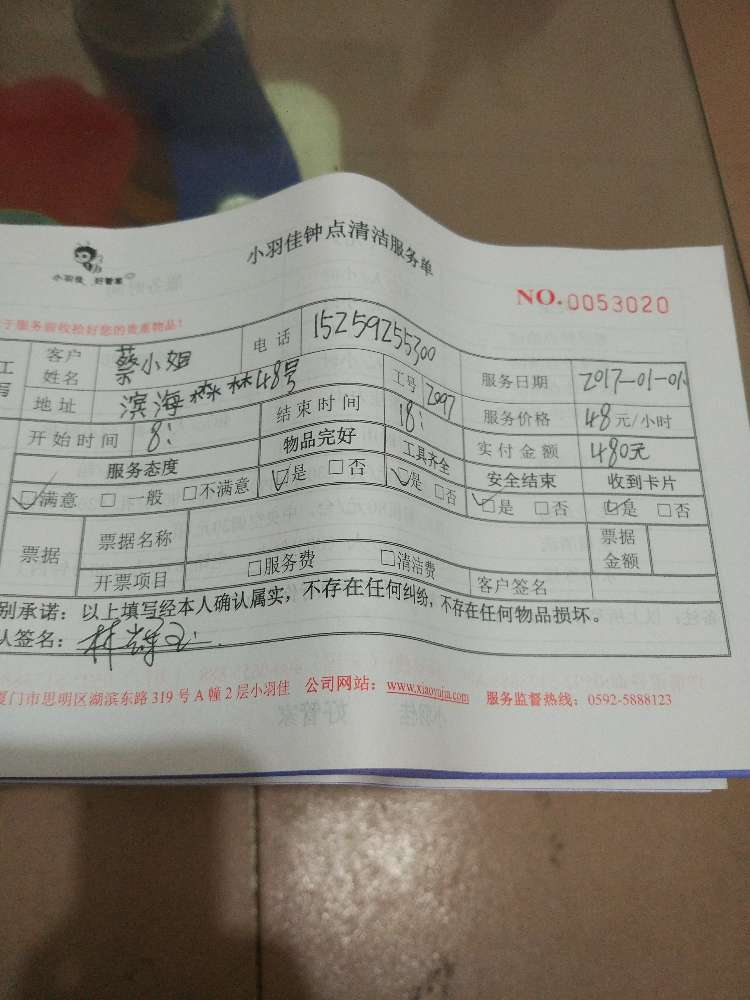 小羽佳钟点清洁服务单
小羽佳 好管家
NO.0053020
于服务前收拾好您的贵重物品!
客户姓名 蔡小姐 电话 15259255300 服务日期 2017-01-01
地址 滨海森林48号 工号 2097 服务价格 48元/小时
开始时间 8: 结束时间 18: 实付金额 480元
服务态度 物品完好 工具齐全 安全结束 收到卡片
☑满意 □一般 □不满意 ☑是 □否 ☑是 □否 ☑是 □否 ☑是 □否
票据 票据名称 票据金额
开票项目 □服务费 □清洁费 客户签名
别承诺:以上填写经本人确认属实,不存在任何纠纷,不存在任何物品损坏。
人签名:
厦门市思明区湖滨东路319号A幢2层小羽佳 公司网站:www.xiaoyujia.com 服务监督热线:0592-5888123